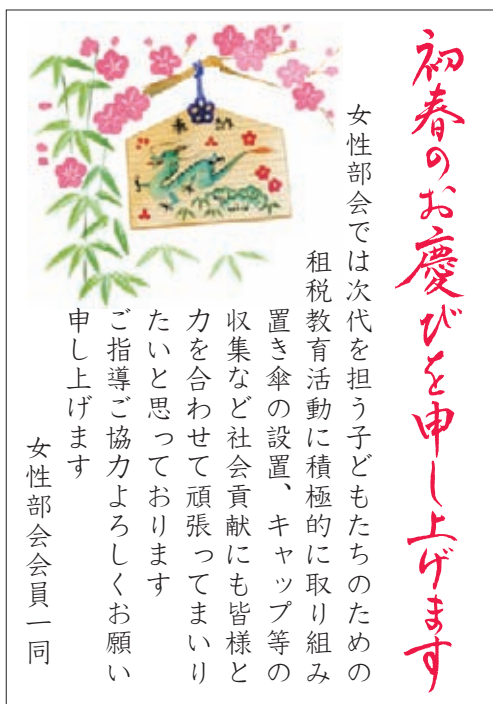 初春のお慶びを申し上げます
女性部会では次代を担う子どもたちのための
租税教育活動に積極的に取り組み
置き傘の設置、キャップ等の
収集など社会貢献にも皆様と
力を合わせて頑張ってまいり
たいと思っております
ご指導ご協力よろしくお願い
申し上げます
女性部会会員一同